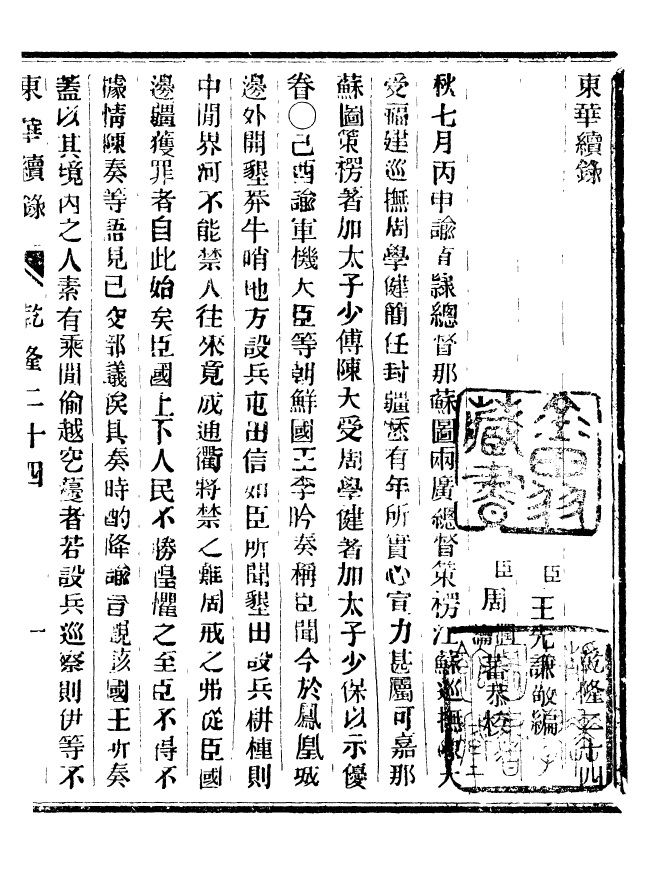 東華續錄
乾隆二十四
臣王先謙敬編
臣周潤蕃恭校
秋七月丙申諭直隸總督那蘇圖兩廣總督策楞江蘇巡撫陳大
受福建巡撫周學健簡任封疆歷有年所實心宣力甚屬可嘉那
蘇圖策楞著加太子少傅陳大受周學健著加太子少保以示優
眷〇己酉諭軍機大臣等朝鮮國王李昑奏稱臣聞今於鳳凰城
邊外開墾莽牛哨地方設兵屯田信如臣所聞墾田設兵耕種則
中閒界河不能禁人往來竟成通衢將禁之難周戒之弗從臣國
邊疆獲罪者自此始矣臣國上下人民不勝惶懼之至臣不得不
據情陳奏等語見已交部議俟具奏時酌降諭旨觀該國王所奏
蓋以其境內之人素有乘閒偷越空處者若設兵巡察則伊等不
東華續錄 乾隆二十四 一